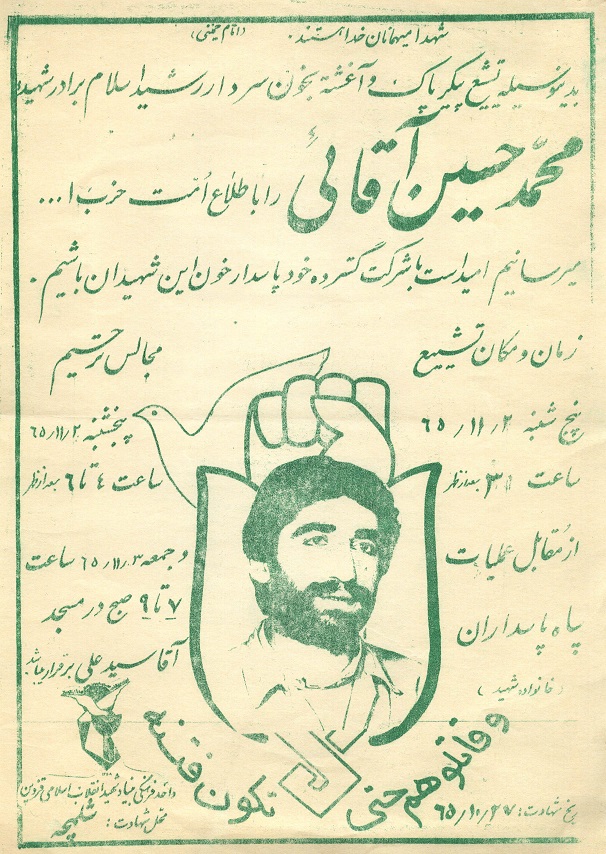 شهدا میهمانان خدا هستند. (امام خمینی)
بدینوسیله تشیع پیکر پاک و آغشته بخون سردار رشید اسلام برادر شهید:
محمد حسین آقائی
را با طلاع اُمّت حزب ا...
میرسانیم امید است با شرکت گسترده خود پاسدار خون این شهیدان باشیم.
زمان و مکان تشییع
پنج شنبه ۶۵/۱۱/۲
ساعت بعدازظر
از مُقابل عملیات
سپاه پاسداران
(خانواده شهید)
مجالس ترحیم
پنجشنبه ۶۵/۱۱/۲
ساعت ٤ تا ۶ بعدازظر
و جمعه ۶۵/۱۱/۳ ساعت
۷ تا ۹ صبح در مسجد
آقا سید علی برقرار میباشد
و قاتلوهم حتی
تکون فتنه
واحد فرهنگی بنیاد شهید انقلاب اسلامی قزوین
محل شهادت: شلمچه
تاریخ شهادت: ۶۵/۱۰/۲۷